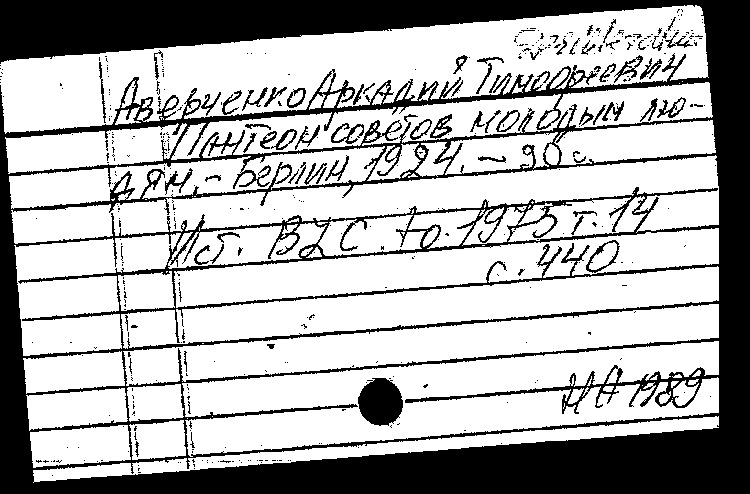 Аверченко Аркадий Тимофеевич
Пантеон советов молодым лю-
дям. - Берлин, 1924. - 90 с.
Ист. BZC. Го. 1975 т. 14
с. 440
НА 1989